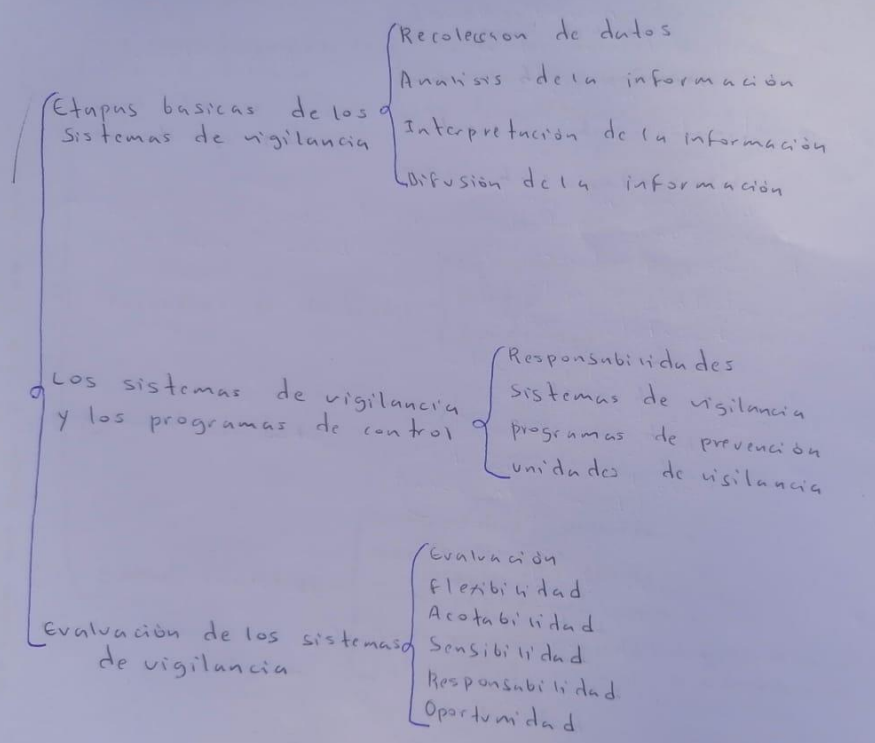 Etapas basicas de los
sistemas de vigilancia
Recoleccion de datos
Analisis de la información
Interpretación de la información
Difusión de la información
Los sistemas de vigilancia
y los programas de control
Responsabilidades
sistemas de vigilancia
programas de prevención
unidades de vigilancia
Evaluación de los sistemas
de vigilancia
Evaluación
flexibilidad
Acotabilidad
Sensibilidad
Responsabilidad
Oportunidad